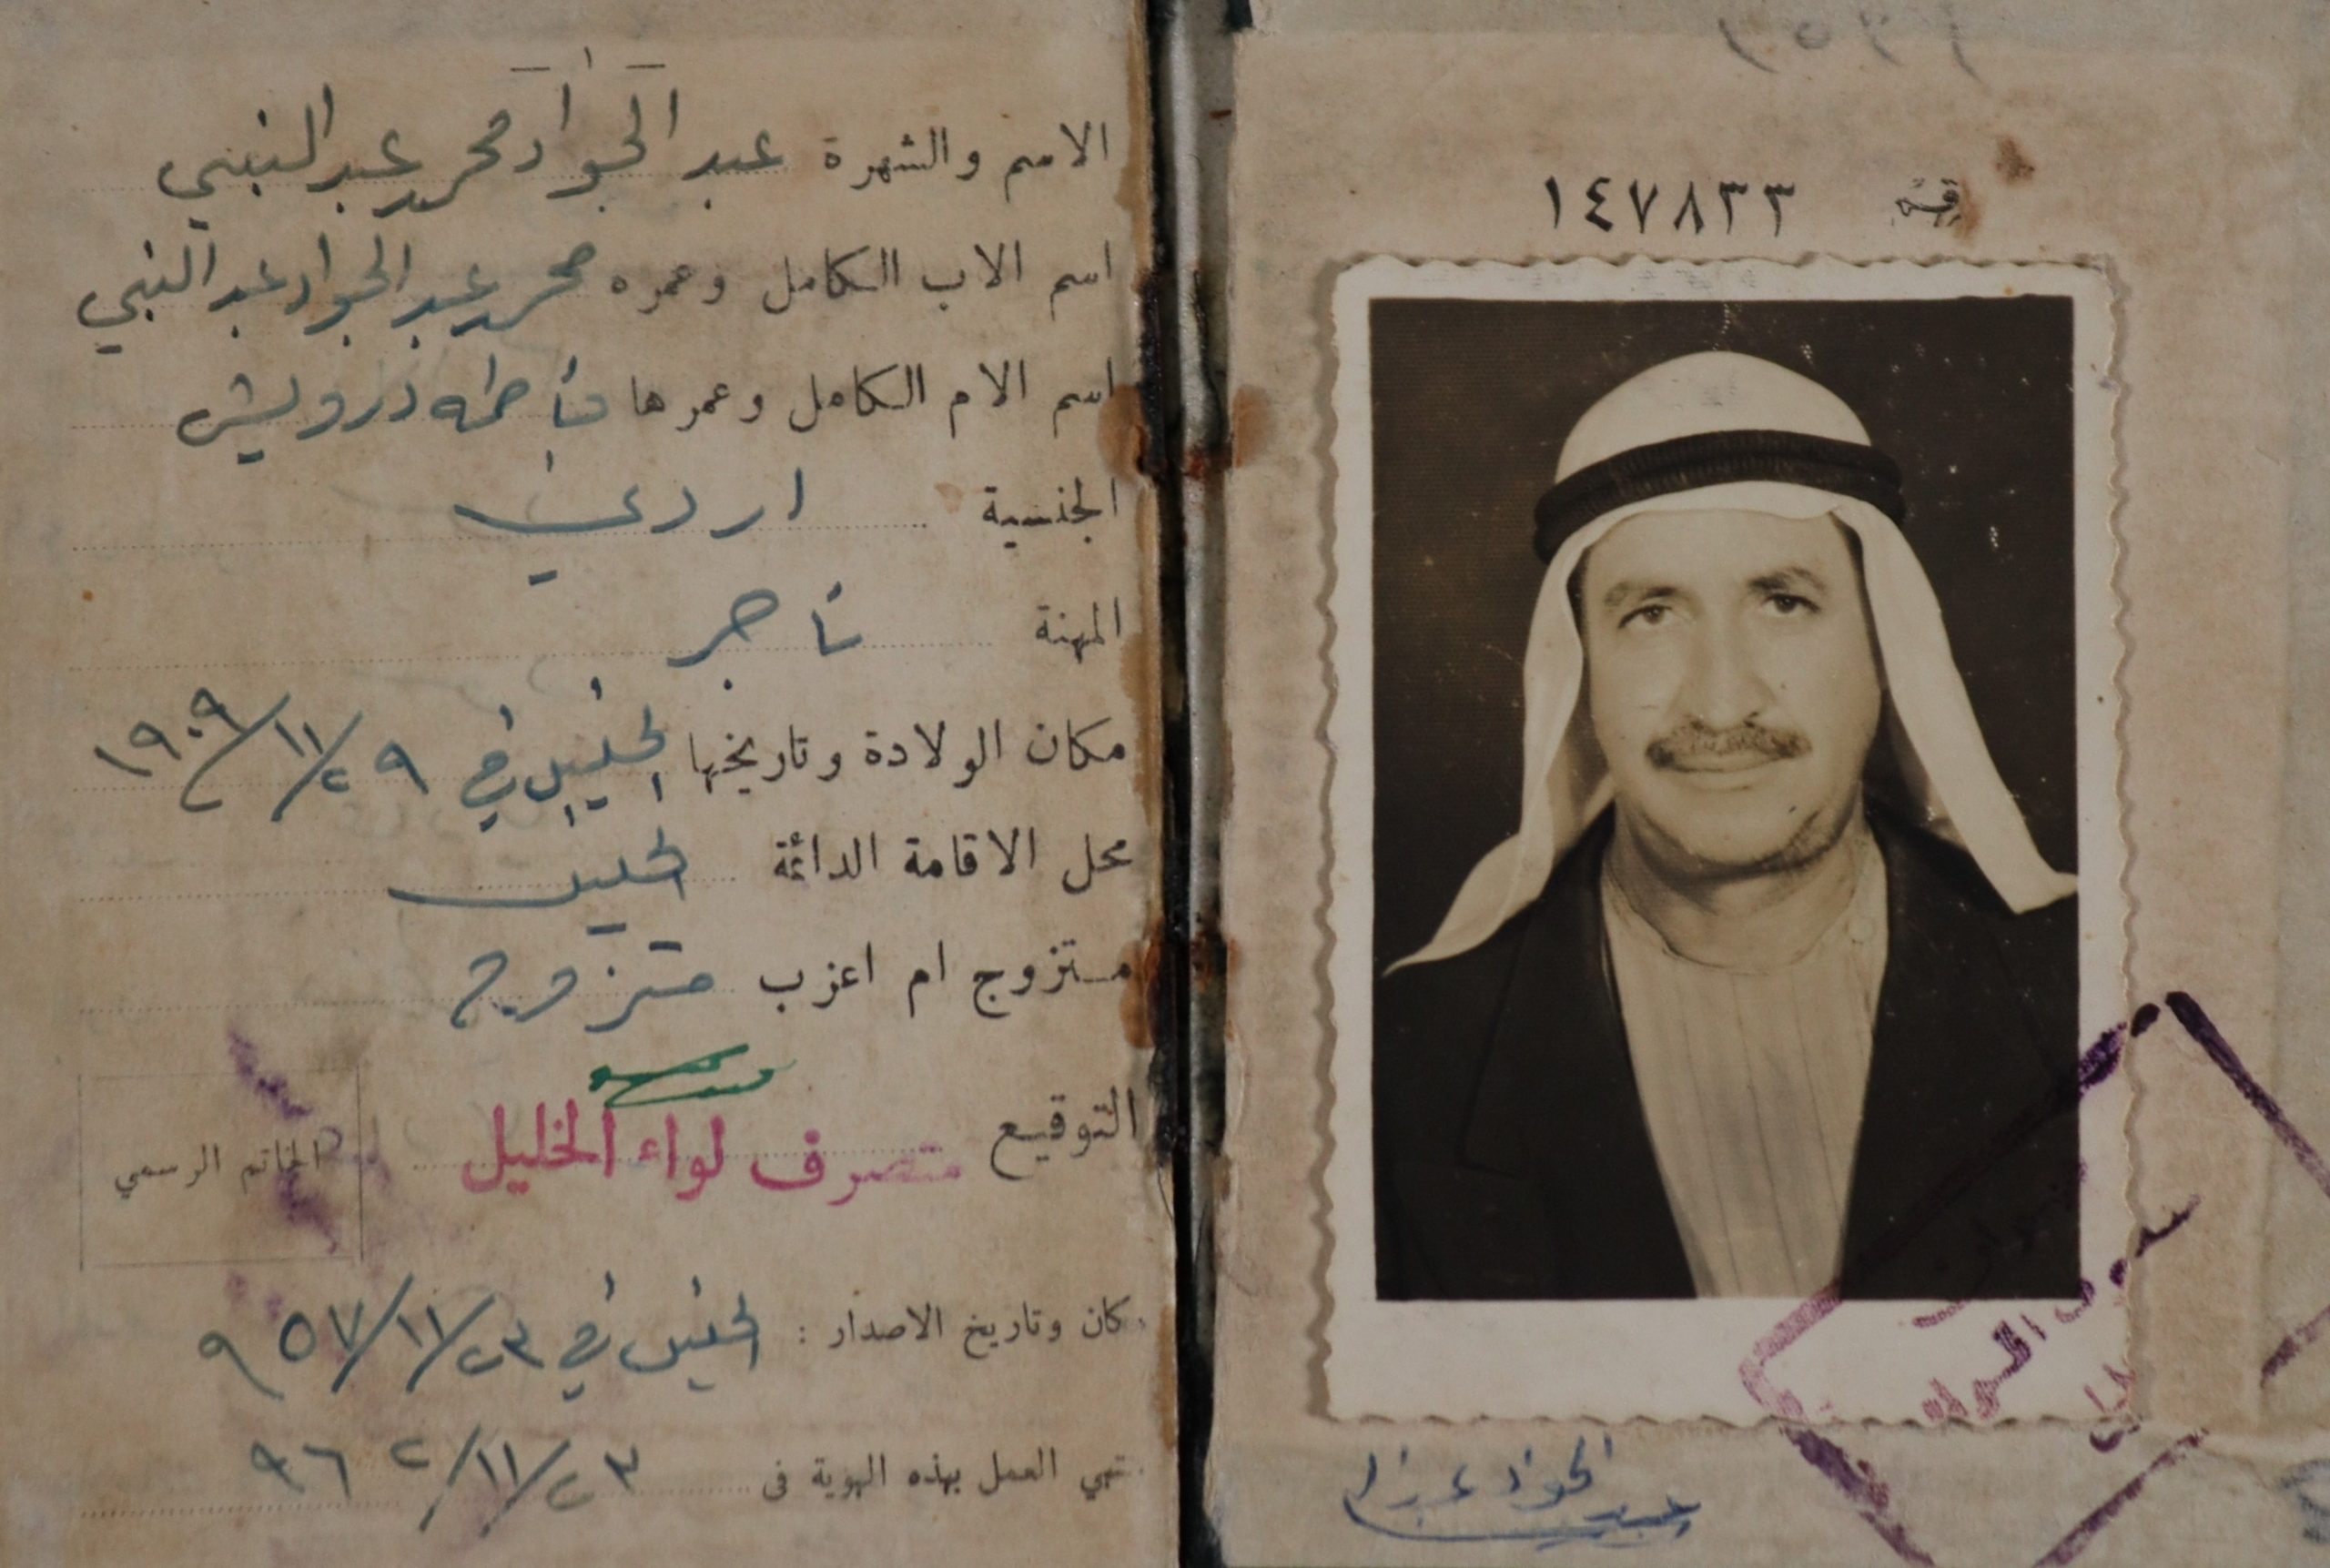 رقم ١٤٧٨٣٣
الاسم والشهرة عبد الجواد محمد عبد النبي
اسم الاب الكامل وعمره محمد عبد الجواد عبد النبي
اسم الام الكامل وعمرها فاطمه درويش
الجنسية اردني
المهنة تاجر
مكان الولادة وتاريخها الخليل في ٢٩/١١/١٩٠٩
محل الاقامة الدائمة الخليل
متزوج ام اعزب متزوج
التوقيع متصرف لواء الخليل
الخاتم الرسمي
مكان وتاريخ الاصدار : الخليل في ٢٣/١١/٩٥٧
تنتهي العمل بهذه الهوية في ٢٣/١١/٩٦٢
عبد الجواد